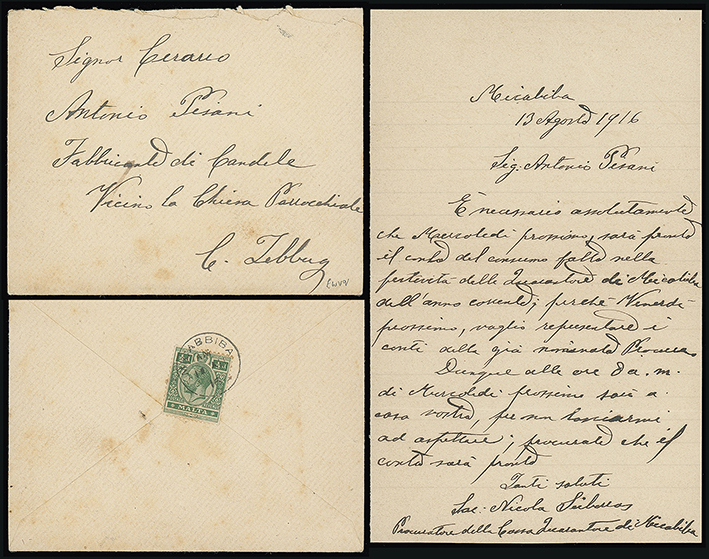 Signor Cerario
Antonio Pisani
Fabbricante di Candele
Vicino la Chiesa Parrocchiale
C. Zebbug
ABBIBA
½d ½d
MALTA
Micabiba
13 Agosto 1916
Sig. Antonio Pisani
È necessario assolutamente
che Mercoledi prossimo, sarà pronto
il conto del consumo fatto nella
festività delle Quarantore di Micabiba
dell'anno corrente; perchè Venerdi
prossimo, voglio representare i
conti della già nominata Procura
Dunque alle ore 8 a.m.
di Mercoledi prossimo sarò a
casa vostra, per non lasciarmi
ad aspettare; procurate che il
conto sarà pronto
Tanti saluti
Sac. Nicola
Procuratore della Cassa Quarantore di Micabiba